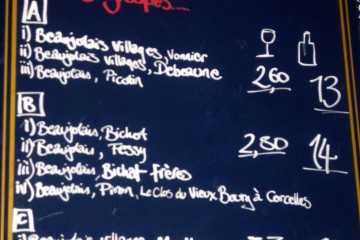 A
i) Beaujolais Villages, Vonnier
ii) Beaujolais Villages, Debeaune
iii) Beaujolais, Picolin 2,60 13
B
i) Beaujolais, Bichot
ii) Beaujolais, Fessy 2,80 14
iii) Beaujolais, Bichat-Frères
iv) Beaujolais, Piron, Le Clos du Vieux Bourg à Corcelles
C